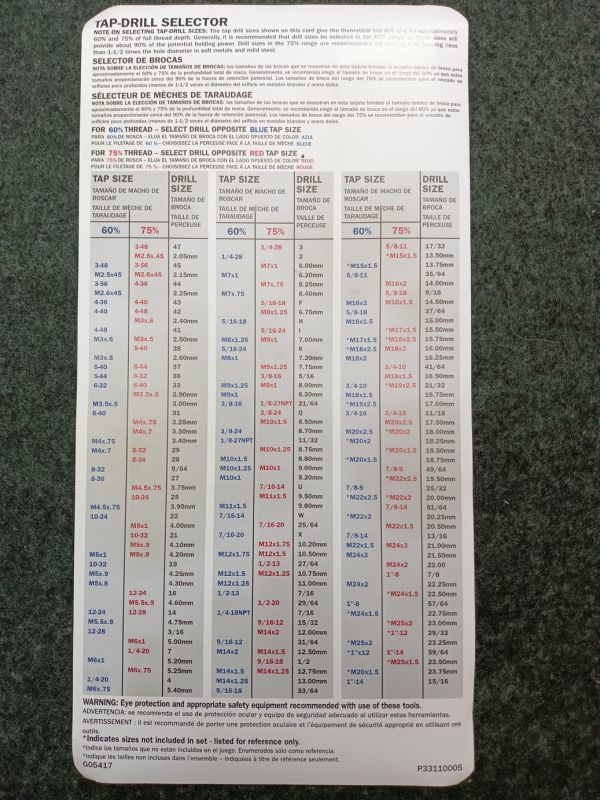 TAP-DRILL SELECTOR
NOTE ON SELECTING TAP-DRILL SIZES: The tap drill sizes shown on this card give the theoretical tap drill size for approximately
60% and 75% of full thread depth. Generally, it is recommended that drill sizes be selected in the 60% range as these sizes will
provide about 90% of the potential holding power. Drill sizes in the 75% range are recommended for (less
than 1-1/2 times the hole diameter in soft metals and mild steel.
SELECTOR DE BROCAS
NOTA SOBRE LA ELECCIÓN DE TAMAÑOS DE BROCAS: los tamaños de las brocas que se muestran en esta tarjeta brindan el tamaño teórico de broca para
aproximadamente el 60% y 75% de la profundidad total de rosca. Generalmente, se recomienda elegir el tamaño de broca en el rango del 60% ya que estos
tamaños proporcionarán cerca del 90% de la fuerza de retención potencial. Los tamaños de broca del rango del 75% se recomiendan para el roscado de
orificios poco profundos (menos de 1-1/2 veces el diámetro del orificio en metales blandos y acero dulce.
SÉLECTEUR DE MÈCHES DE TARAUDAGE
NOTA SOBRE LA ELECCIÓN DE TAMAÑOS DE BROCAS: los tamaños de las brocas que se muestran en esta tarjeta brindan el tamaño teórico de broca para
aproximadamente el 60% y 75% de la profundidad total de rosca. Generalmente, se recomienda elegir el tamaño de broca en el rango del 60% ya que estos
tamaños proporcionarán cerca del 90% de la fuerza de retención potencial. Los tamaños de broca del rango del 75% se recomiendan para el roscado de
orificios poco profundos (menos de 1-1/2 veces el diámetro del orificio en metales blandos y acero dulce.
FOR 60% THREAD – SELECT DRILL OPPOSITE BLUE TAP SIZE
PARA 60% DE ROSCA – ELIJA EL TAMAÑO DE BROCA CON EL LADO OPUESTO DE COLOR AZUL
POUR LE FILETAGE DE 60 % – CHOISISSEZ LA PERCEUSE FACE À LA TAILLE DE MÈCHE BLEUE
FOR 75% THREAD – SELECT DRILL OPPOSITE RED TAP SIZE
PARA 75% DE ROSCA – ELIJA EL TAMAÑO DE BROCA CON EL LADO OPUESTO DE COLOR ROJO
POUR LE FILETAGE DE 75 % – CHOISISSEZ LA PERCEUSE FACE À LA TAILLE DE MÈCHE ROUGE
TAP SIZE DRILL SIZE TAP SIZE DRILL SIZE TAP SIZE DRILL SIZE
TAMAÑO DE MACHO DE ROSCAR TAMAÑO DE BROCA TAMAÑO DE MACHO DE ROSCAR TAMAÑO DE BROCA TAMAÑO DE MACHO DE ROSCAR TAMAÑO DE BROCA
TAILLE DE MÈCHE DE TARAUDAGE TAILLE DE PERCEUSE TAILLE DE MÈCHE DE TARAUDAGE TAILLE DE PERCEUSE TAILLE DE MÈCHE DE TARAUDAGE TAILLE DE PERCEUSE
60% 75% 60% 75% 60% 75%
3-48 47
M2.5x.45 2.05mm
3-48 3-56 45
M2.5x45 M2.6x45 2.15mm
3-56 4-36 44
M2.6x45 2.25mm
4-36 4-40 43
4-40 4-48 42
M3x.6 2.40mm
4-48 41
M3x.6 M3x.5 2.50mm
5-40 38
M3x.5 2.60mm
5-40 5-44 37
5-44 6-32 36
6-32 6-40 33
M3.5x.6 2.90mm
M3.5x.6 3.00mm
6-40 31
M4x.75 3.25mm
M4x.7 3.30mm
M4x.75 3.40mm
M4x.7 8-32 29
8-36 28
8-32 9/64
8-36 27
M4.5x.75 3.75mm
10-24 25
M4.5x.75 3.90mm
10-24 22
M5x1 4.00mm
10-32 21
M5x.9 4.10mm
M5x1 M5x.8 4.20mm
10-32 19
M5x.9 4.25mm
M5x.8 4.30mm
12-24 16
M5.5x.9 4.60mm
12-24 12-28 14
M5.5x.9 4.75mm
12-28 3/16
M6x1 5.00mm
1/4-20 7
M6x1 5.20mm
M6x.75 5.25mm
1/4-20 4
M6x.75 5.40mm
1/4-28 3
1/4-28 2
M7x1 6.00mm
M7x1 6.20mm
M7x.75 6.25mm
M7x.75 6.40mm
5/16-18 F
M8x1.25 6.75mm
5/16-18 H
5/16-24 I
M8x1.25 M8x1 7.00mm
5/16-24 K
M8x1 7.20mm
M9x1.25 7.75mm
3/8-16 5/16
M9x1.25 M9x1 8.00mm
M9x1 8.20mm
3/8-16 1/8-27NPT 21/64
3/8-24 Q
M10x1.5 8.50mm
3/8-24 8.70mm
1/8-27NPT 11/32
M10x1.25 8.75mm
M10x1.5 8.80mm
M10x1.25 M10x1 9.00mm
M10x1 9.20mm
7/16-14 U
M11x1.5 9.50mm
M11x1.5 9.80mm
7/16-14 W
7/16-20 25/64
7/16-20 X
M12x1.75 10.20mm
M12x1.75 M12x1.5 10.50mm
1/2-13 27/64
M12x1.5 M12x1.25 10.75mm
M12x1.25 11.00mm
1/2-13 7/16
1/2-20 29/64
1/4-18NPT 7/16
9/16-12 15/32
M14x2 12.00mm
9/16-12 31/64
M14x2 M14x1.5 12.50mm
9/16-18 1/2
M14x1.5 M14x1.25 12.75mm
M14x1.25 13.00mm
9/16-18 33/64
5/8-11 17/32
*M15x1.5 13.50mm
*M15x1.5 13.75mm
5/8-11 35/64
M16x2 14.00mm
5/8-18 9/16
M16x2 M16x1.5 14.50mm
5/8-18 37/64
M16x1.5 15.00mm
*M17x1.5 15.50mm
*M17x1.5 *M18x2.5 15.75mm
*M18x2.5 M18x2 16.00mm
M18x2 16.25mm
3/4-10 41/64
M18x1.5 16.50mm
3/4-10 *M19x2.5 21/32
M18x1.5 16.75mm
*M19x2.5 17.00mm
3/4-16 3/4-16 11/16
M20x2.5 17.50mm
M20x2.5 *M20x2 18.00mm
*M20x2 18.25mm
*M20x1.5 18.50mm
*M20x1.5 18.75mm
7/8-9 49/64
*M22x2.5 19.50mm
7/8-9 25/32
*M22x2.5 *M22x2 20.00mm
7/8-14 51/64
*M22x2 20.25mm
M22x1.5 20.50mm
7/8-14 13/16
M22x1.5 M24x3 21.00mm
M24x3 21.50mm
M24x2 22.00
1"-8 7/8
M24x2 22.25mm
*M24x1.5 22.50mm
1"-8 57/64
*M24x1.5 22.75mm
*M25x2 23.00mm
*1"-12 29/32
*M25x2 23.25mm
*1"x12 1"-14 59/64
*M25x1.5 23.50mm
*M20x1.5 23.75mm
1"-14 15/16
WARNING: Eye protection and appropriate safety equipment recommended with use of these tools.
ADVERTENCIA: se recomienda el uso de protección ocular y equipo de seguridad adecuado al utilizar estas herramientas.
AVERTISSEMENT : il est recommandé de porter une protection oculaire et l'équipement de sécurité approprié en utilisant ces
outils.
*Indicates sizes not included in set - listed for reference only.
*Indica los tamaños que no están incluidos en el juego. Enumerados sólo como referencia.
*Indique les tailles non incluses dans l'ensemble – indiquées à titre de référence seulement.
G05417 P33110005